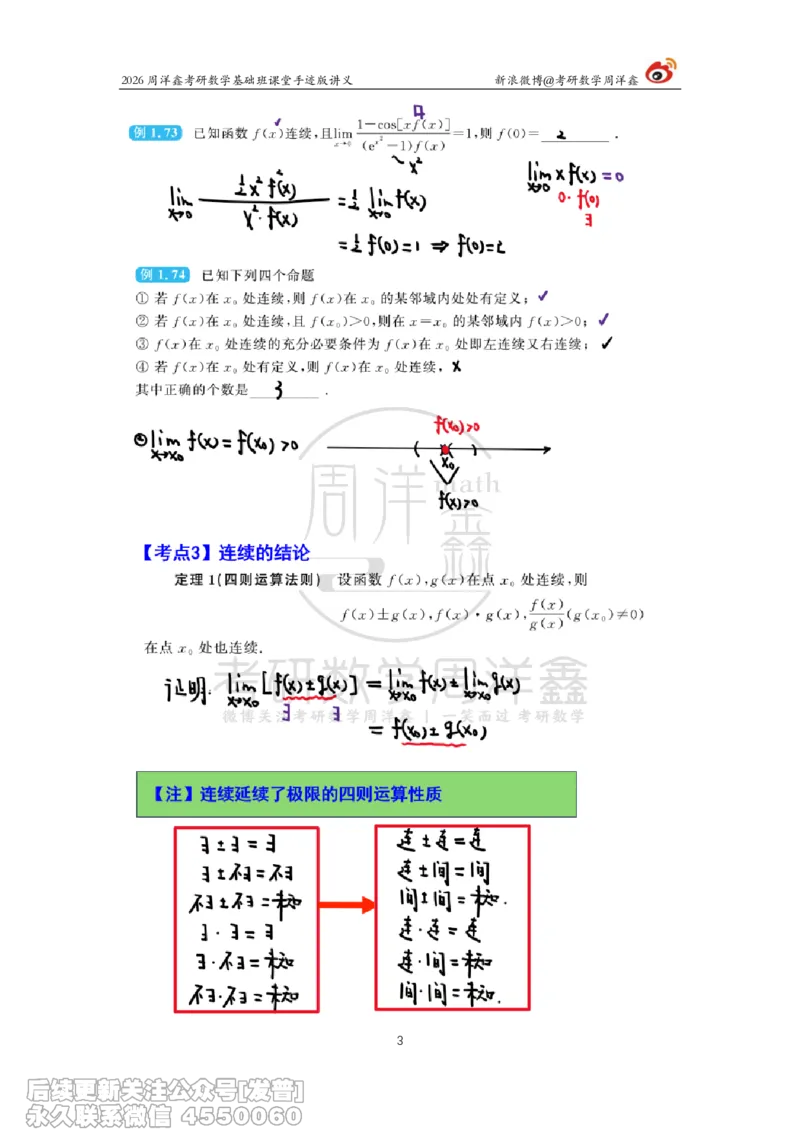 2026 周洋鑫考研数学基础班课堂手迹版讲义 新浪微博@考研数学周洋鑫
例 1.73 已知函数 f(x)连续,且lim_{x→0} (1-cos[xf(x)])/((e^{x²}-1)f(x)) =1,则 f(0)= 2 .
~x²
lim_{x→0} (½x²f²(x))/(x²·f(x)) =½ lim_{x→0} f(x)
lim_{x→0} xf(x)=0
0·f(0)
∃
=½f(0)=1 ⇒ f(0)=2
例 1.74 已知下列四个命题
① 若 f(x)在 x₀ 处连续,则 f(x)在 x₀ 的某邻域内处处有定义; ✓
② 若 f(x)在 x₀ 处连续,且 f(x₀)>0,则在 x=x₀ 的某邻域内 f(x)>0; ✓
③ f(x)在 x₀ 处连续的充分必要条件为 f(x)在 x₀ 处即左连续又右连续; ✓
④ 若 f(x)在 x₀ 处有定义,则 f(x)在 x₀ 处连续, ×
其中正确的个数是 3 .
②lim_{x→x₀} f(x)=f(x₀)>0
f(x₀)>0
( )
x₀
f(x)>0
周洋鑫
math
【考点3】连续的结论
定理 1(四则运算法则) 设函数 f(x),g(x)在点 x₀ 处连续,则
f(x)±g(x),f(x)·g(x),f(x)/g(x)(g(x₀)≠0)
在点 x₀ 处也连续.
考研数学周洋鑫
证明. lim_{x→x₀}[f(x)±g(x)] = lim_{x→x₀} f(x)± lim_{x→x₀} g(x)
∃ ∃
微博关注考研数学周洋鑫 | 一笑而过 考研数学
= f(x₀)±g(x₀)
【注】连续延续了极限的四则运算性质
∃±∃=∃
∃±不∃=不∃
不∃±不∃=未知
∃·∃=∃
∃·不∃=未知
不∃·不∃=未知
连±连=连
连±间=间
间±间=未知.
连·连=连
连·间=未知
间·间=未知.
3
后续更新关注公众号[发普]
永久联系微信 4550060